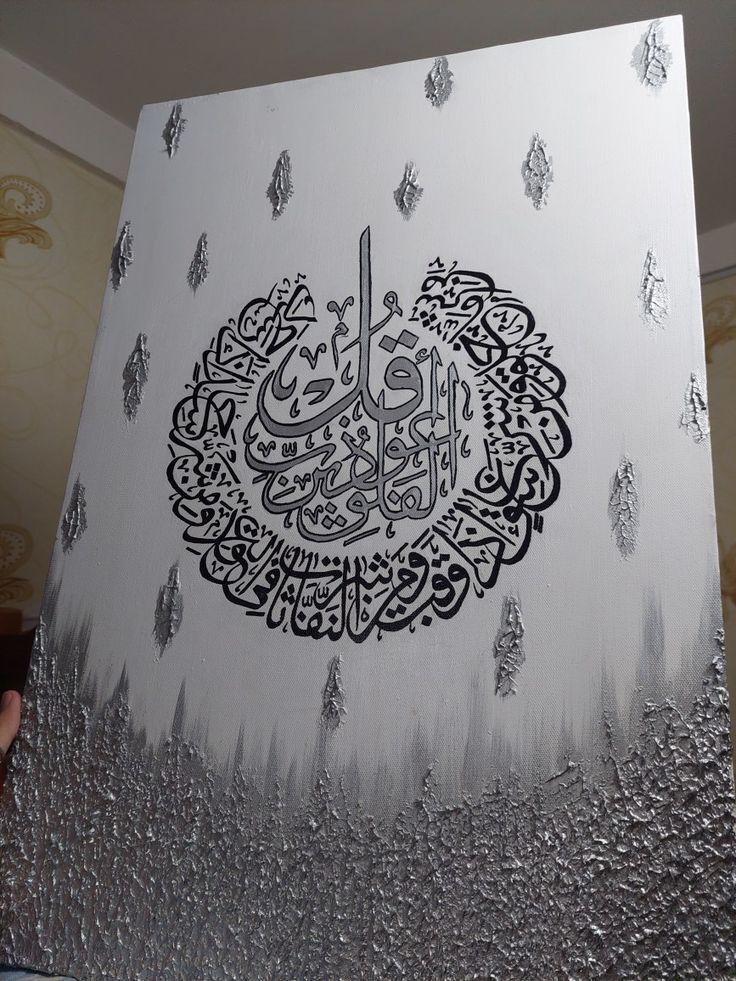 قل أعوذ برب الفلق
من شر ما خلق ومن شر غاسق إذا وقب ومن شر النفاثات في العقد ومن شر حاسد إذا حسد